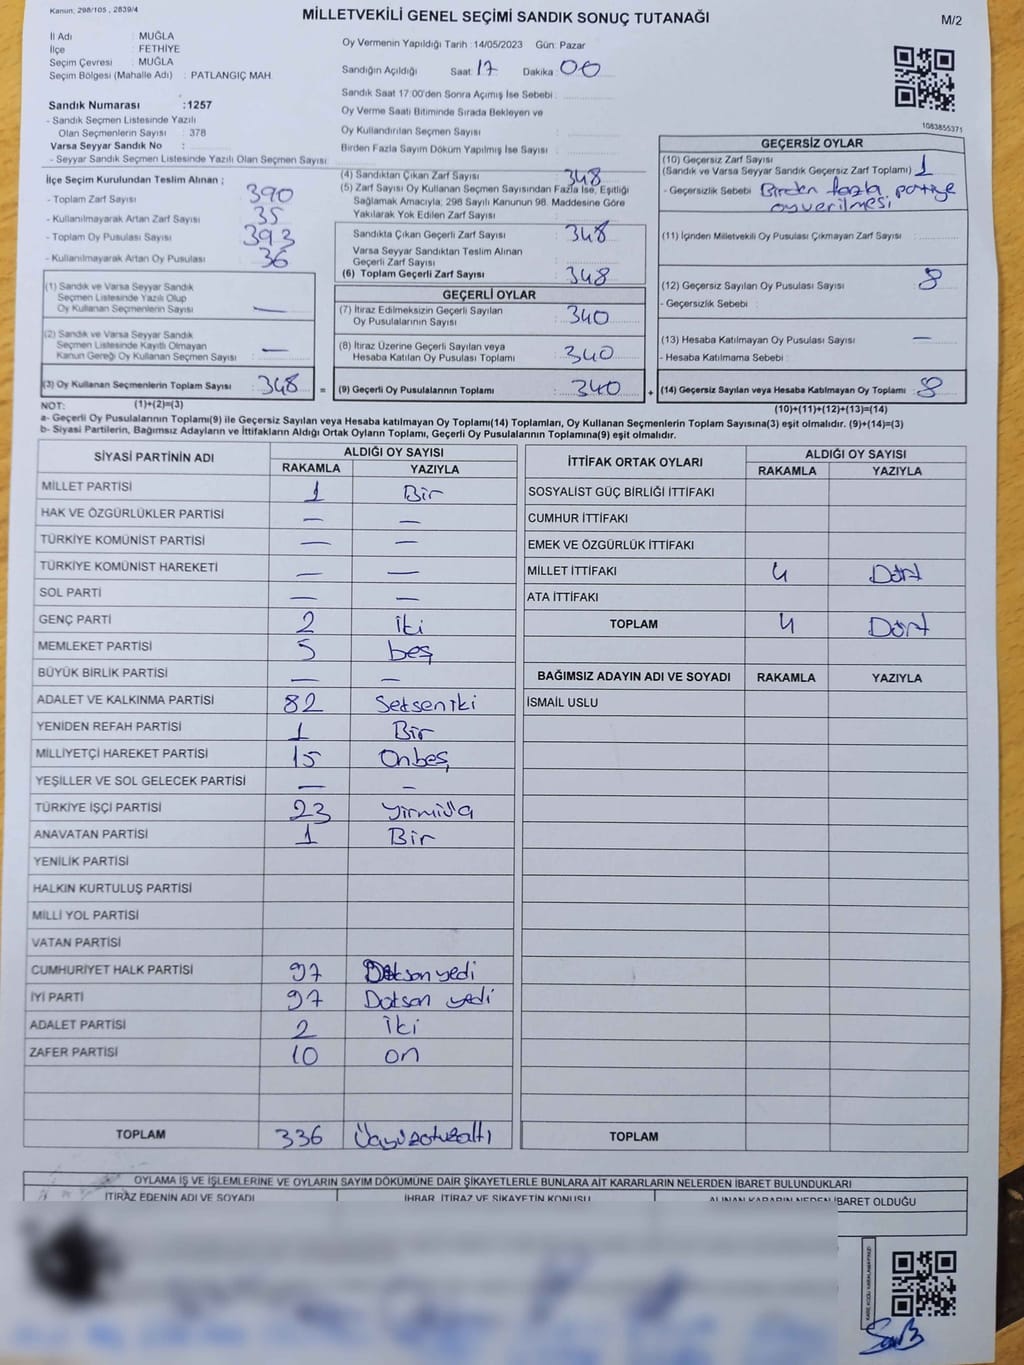 Kanun, 298/105 , 2839/4
MİLLETVEKİLİ GENEL SEÇİMİ SANDIK SONUÇ TUTANAĞI
M/2
İl Adı : MUĞLA
İlçe : FETHİYE
Seçim Çevresi : MUĞLA
Seçim Bölgesi (Mahalle Adı) : PATLANGIÇ MAH.
Oy Vermenin Yapıldığı Tarih :14/05/2023 Gün: Pazar
Sandığın Açıldığı Saat: 17 Dakika: 00
Sandık Saat 17:00'den Sonra Açımış İse Sebebi :
Oy Verme Saati Bitiminde Sırada Bekleyen ve
Oy Kullandırılan Seçmen Sayısı :
Birden Fazla Sayım Döküm Yapılmış İse Sayısı :
Sandık Numarası :1257
- Sandık Seçmen Listesinde Yazılı
Olan Seçmenlerin Sayısı : 378
Varsa Seyyar Sandık No :
- Seyyar Sandık Seçmen Listesinde Yazılı Olan Seçmen Sayısı:
1083855371
İlçe Seçim Kurulundan Teslim Alınan ;
- Toplam Zarf Sayısı : 390
- Kullanılmayarak Artan Zarf Sayısı : 35
- Toplam Oy Pusulası Sayısı : 393
- Kullanılmayarak Artan Oy Pusulası : 36
(1) Sandık ve Varsa Seyyar Sandık
Seçmen Listesinde Yazılı Olup
Oy Kullanan Seçmenlerin Sayısı : —
(2) Sandık ve Varsa Seyyar Sandık
Seçmen Listesinde Kayıtlı Olmayan
Kanun Gereği Oy Kullanan Seçmen Sayısı : —
(3) Oy Kullanan Seçmenlerin Toplam Sayısı : 348 =
(1)+(2)=(3)
(4) Sandıktan Çıkan Zarf Sayısı : 348
(5) Zarf Sayısı Oy Kullanan Seçmen Sayısından Fazla İse, Eşitliği
Sağlamak Amacıyla; 298 Sayılı Kanunun 98. Maddesine Göre
Yakılarak Yok Edilen Zarf Sayısı :
Sandıkta Çıkan Geçerli Zarf Sayısı : 348
Varsa Seyyar Sandıktan Teslim Alınan
Geçerli Zarf Sayısı :
(6) Toplam Geçerli Zarf Sayısı : 348
GEÇERLİ OYLAR
(7) İtiraz Edilmeksizin Geçerli Sayılan
Oy Pusulalarının Sayısı : 340
(8) İtiraz Üzerine Geçerli Sayılan veya
Hesaba Katılan Oy Pusulası Toplamı : 340
(9) Geçerli Oy Pusulalarının Toplamı : 340 +
GEÇERSİZ OYLAR
(10) Geçersiz Zarf Sayısı
(Sandık ve Varsa Seyyar Sandık Geçersiz Zarf Toplamı) : 1
- Geçersizlik Sebebi : Birden fazla partiye
oy verilmesi
(11) İçinden Milletvekili Oy Pusulası Çıkmayan Zarf Sayısı :
(12) Geçersiz Sayılan Oy Pusulası Sayısı : 8
- Geçersizlik Sebebi :
(13) Hesaba Katılmayan Oy Pusulası Sayısı : —
- Hesaba Katılmama Sebebi :
(14) Geçersiz Sayılan veya Hesaba Katılmayan Oy Toplamı : 8
(10)+(11)+(12)+(13)=(14)
NOT:
a- Geçerli Oy Pusulalarının Toplamı(9) ile Geçersiz Sayılan veya Hesaba katılmayan Oy Toplamı(14) Toplamları, Oy Kullanan Seçmenlerin Toplam Sayısına(3) eşit olmalıdır. (9)+(14)=(3)
b- Siyasi Partilerin, Bağımsız Adayların ve İttifakların Aldığı Ortak Oyların Toplamı, Geçerli Oy Pusulalarının Toplamına(9) eşit olmalıdır.
SİYASİ PARTİNİN ADI ALDIĞI OY SAYISI
RAKAMLA YAZIYLA
MİLLET PARTİSİ 1 Bir
HAK VE ÖZGÜRLÜKLER PARTİSİ — —
TÜRKİYE KOMÜNİST PARTİSİ — —
TÜRKİYE KOMÜNİST HAREKETİ — —
SOL PARTİ — —
GENÇ PARTİ 2 iki
MEMLEKET PARTİSİ 5 beş
BÜYÜK BİRLİK PARTİSİ — —
ADALET VE KALKINMA PARTİSİ 82 Seksen iki
YENİDEN REFAH PARTİSİ 1 Bir
MİLLİYETÇİ HAREKET PARTİSİ 15 Onbeş
YEŞİLLER VE SOL GELECEK PARTİSİ — —
TÜRKİYE İŞÇİ PARTİSİ 23
ANAVATAN PARTİSİ 1 Bir
YENİLİK PARTİSİ
HALKIN KURTULUŞ PARTİSİ
MİLLİ YOL PARTİSİ
VATAN PARTİSİ
CUMHURİYET HALK PARTİSİ 97 Doksan yedi
İYİ PARTİ 97 Doksan yedi
ADALET PARTİSİ 2 iki
ZAFER PARTİSİ 10 on
TOPLAM 336 Üçyüzotuzaltı
İTTİFAK ORTAK OYLARI ALDIĞI OY SAYISI
RAKAMLA YAZIYLA
SOSYALİST GÜÇ BİRLİĞİ İTTİFAKI
CUMHUR İTTİFAKI
EMEK VE ÖZGÜRLÜK İTTİFAKI
MİLLET İTTİFAKI 4 Dört
ATA İTTİFAKI
TOPLAM 4 Dört
BAĞIMSIZ ADAYIN ADI VE SOYADI RAKAMLA YAZIYLA
İSMAİL USLU
TOPLAM
OYLAMA İŞ VE İŞLEMLERİNE VE OYLARIN SAYIM DÖKÜMÜNE DAİR ŞİKAYETLERLE BUNLARA AİT KARARLARIN NELERDEN İBARET BULUNDUKLARI
İTİRAZ EDENİN ADI VE SOYADI İHBAR, İTİRAZ VE ŞİKAYETİN KONUSU ALINAN KARARIN NEDEN İBARET OLDUĞU